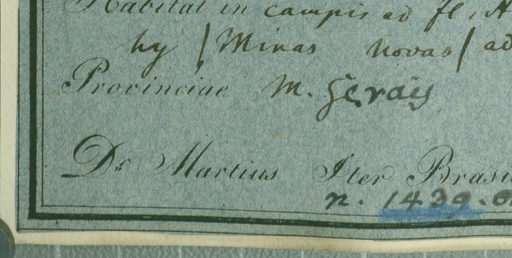 Habitat in campis ad fl.
hy / Minas novas / ad
Provinciae M. Geraës
Dr. Martius Iter Brasi
n. 1439.